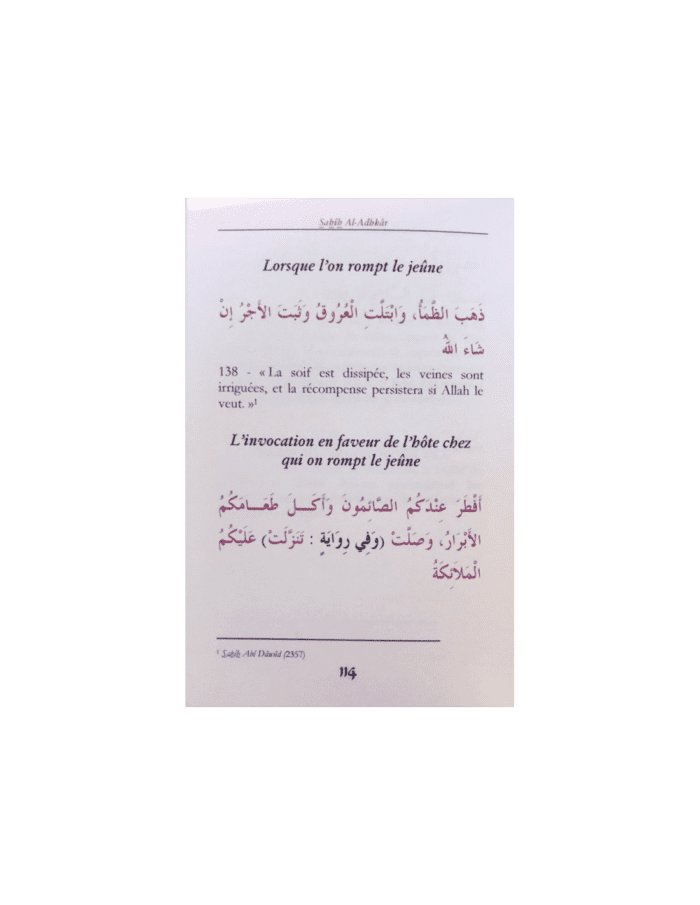 Sahîh Al-Adhkâr
Lorsque l'on rompt le jeûne
ذَهَبَ الظَّمَأُ، وَابْتَلَّتِ الْعُرُوقُ وَثَبَتَ الأَجْرُ إِنْ
شَاءَ اللهُ
138 - « La soif est dissipée, les veines sont
irriguées, et la récompense persistera si Allah le
veut. »¹
L'invocation en faveur de l'hôte chez
qui on rompt le jeûne
أَفْطَرَ عِنْدَكُمُ الصَّائِمُونَ وَأَكَـــلَ طَعَـــامَكُمُ
الأَبْرَارُ، وَصَلَّتْ (وَفِي رِوَايَةٍ : تَنَزَّلَتْ) عَلَيْكُمُ
الْمَلاَئِكَةُ
¹ Sahîh Abî Dâwûd (2357)
114